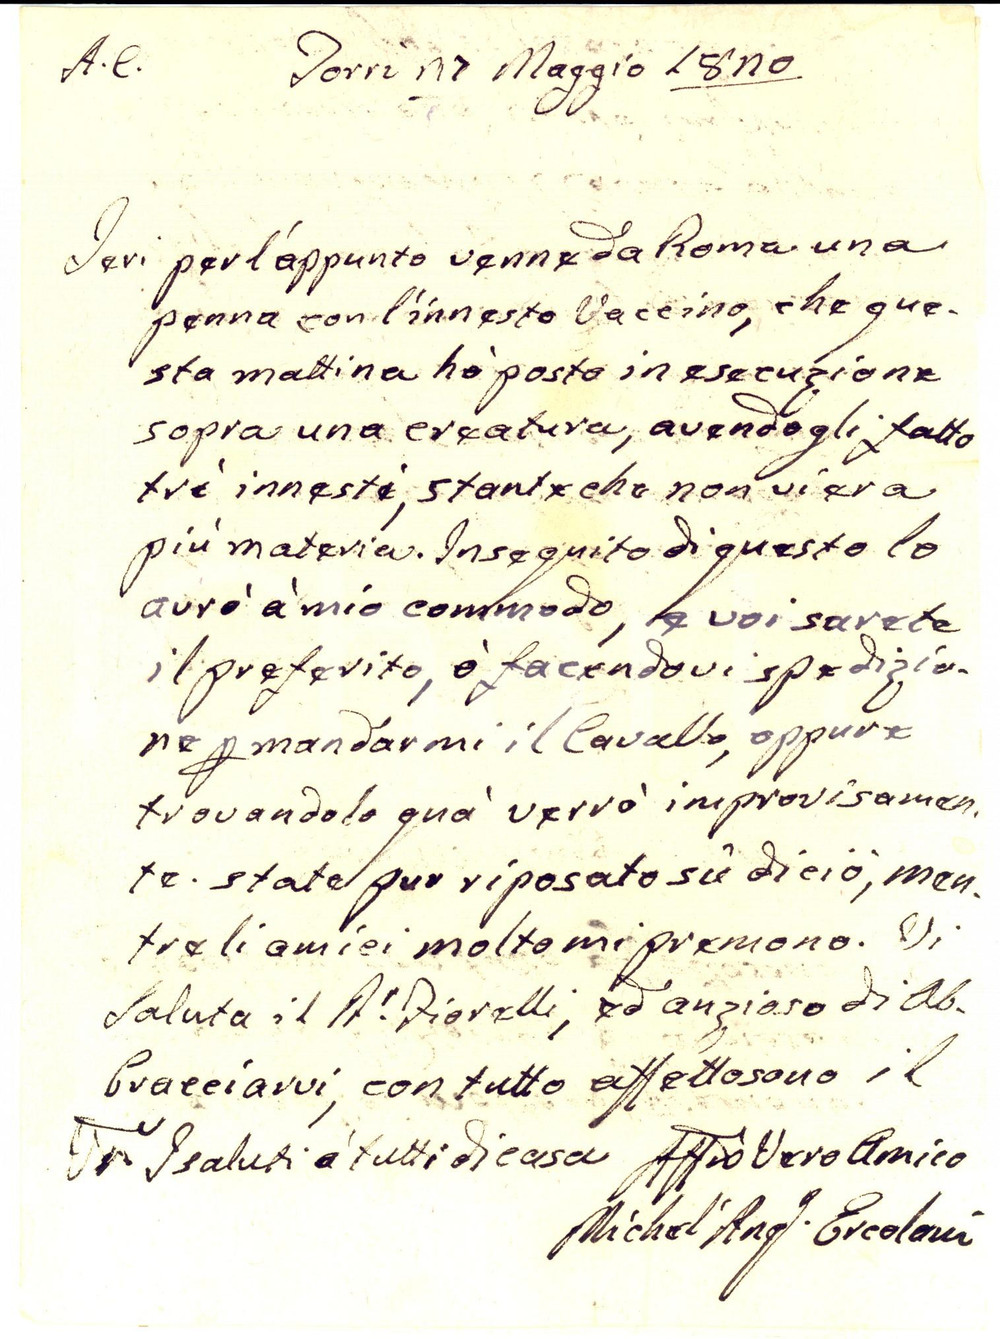 A. C. Torri 27 Maggio 1820
Jeri per l'appunto venne da Roma una
penna con l'innesto Vaccino, che que-
sta mattina hò posto in esecuzione
sopra una creatura, avendogli fatto
trè innesti, stante che non vi era
più materia. In seguito di questo lo
avrò à mio commodo, e voi sarete
il preferito, ò facendovi spedizio-
ne p mandarmi il Cavallo, oppure
trovandolo quà verrò improvisamen-
te. state pur riposato sù di ciò, men-
tre li amici molto mi premono. Vi
Saluta il Fiorelli, ed anzioso di Ab-
bracciarvi, con tutto affetto sono il
I saluti à tutti di casa Affmo Vero Amico
Michel'Ang. Ercolani